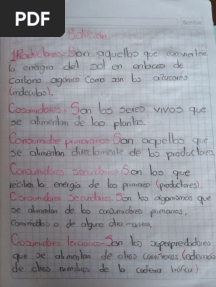 PDF
Solución
Productores: Son aquellos que convierten
la energía del sol en enlaces de
Carbono orgánico como son los azúcares
Consumidores: Son los seres vivos que
se alimentan de las plantas.
Consumidor primarios: Son aquellos que
se alimentan directamente de los productores
Consumidores secundarios: Son los que
reciben la energía de los primeros
Consumidores secundarios: Son los organismos que
se alimentan de los consumidores primarios,
de alguna otra manera.
Consumidores terciarios: Son los superpredadores
que se alimentan de otros carnívoros (además
de otros miembros de la cadena trófica)